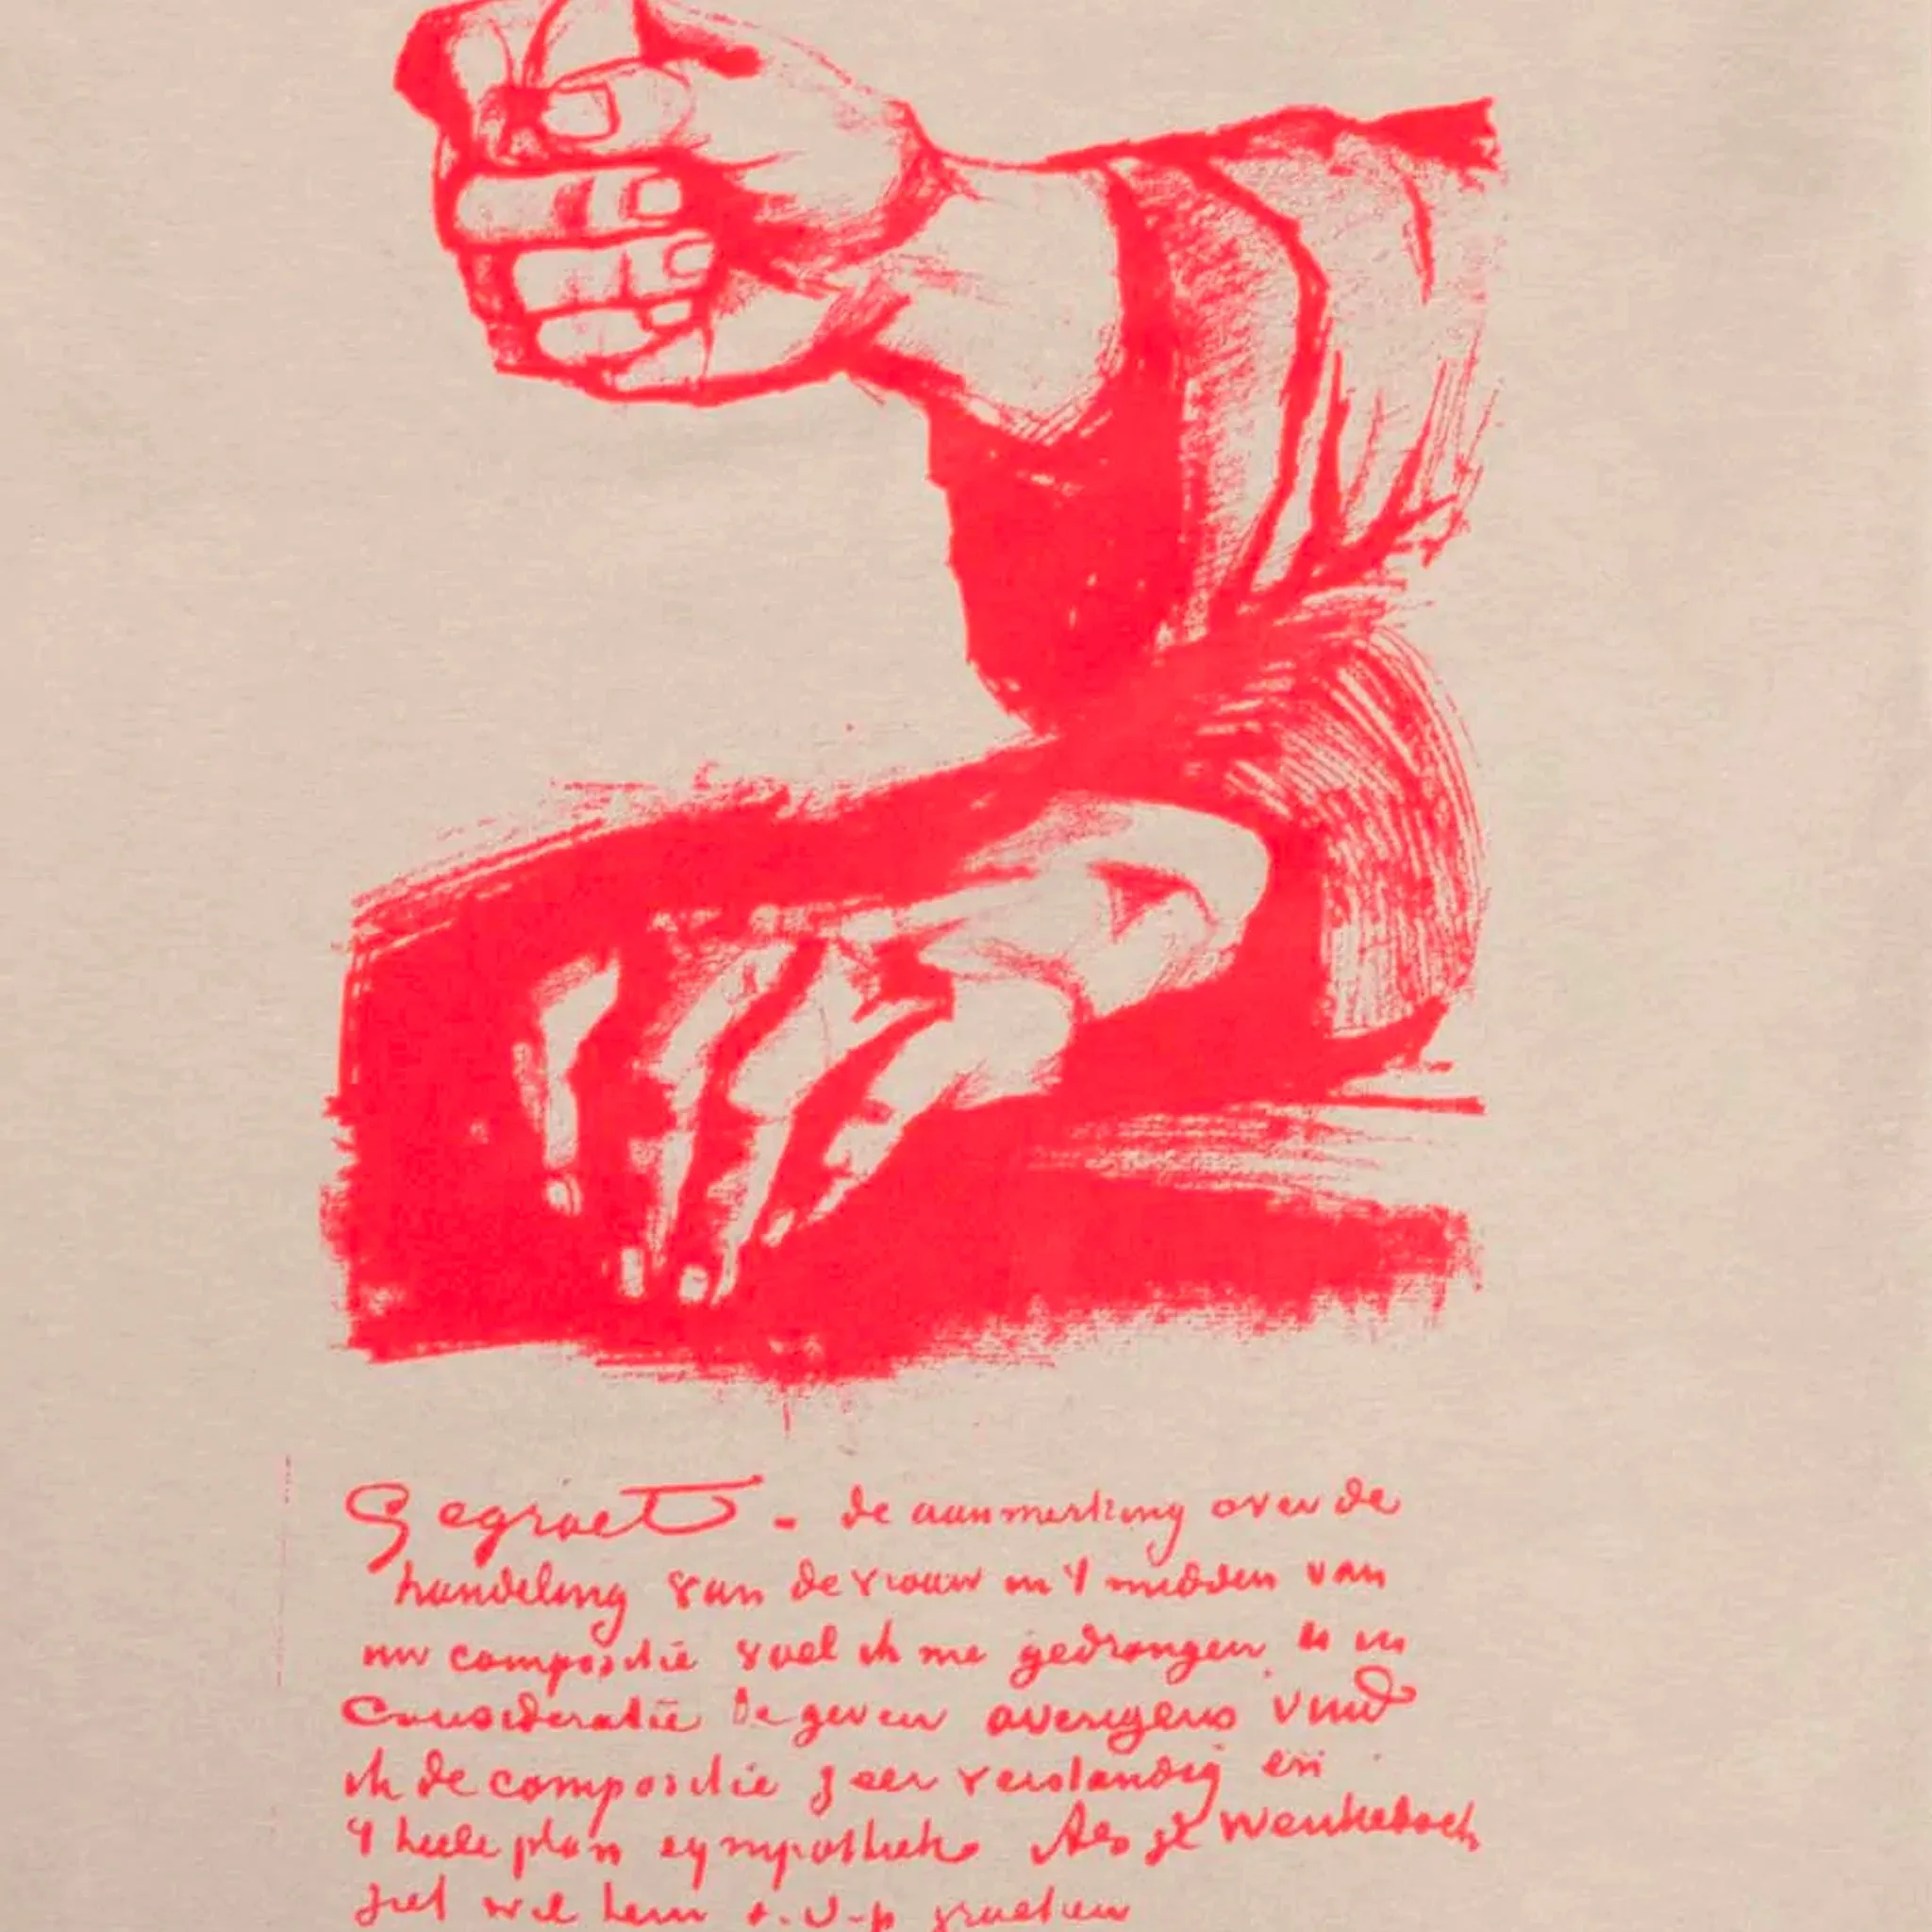 Gegroet - de aanmerking over de
handeling van de vrouw in 't midden van
uw compositie voel ik me gedrongen U in
Consideratie te geven overigens vind
ik de compositie zeer verstandig en
't heele plan sympathiek. Als je Wenkebach
ziet wil hem s.v.p. groeten